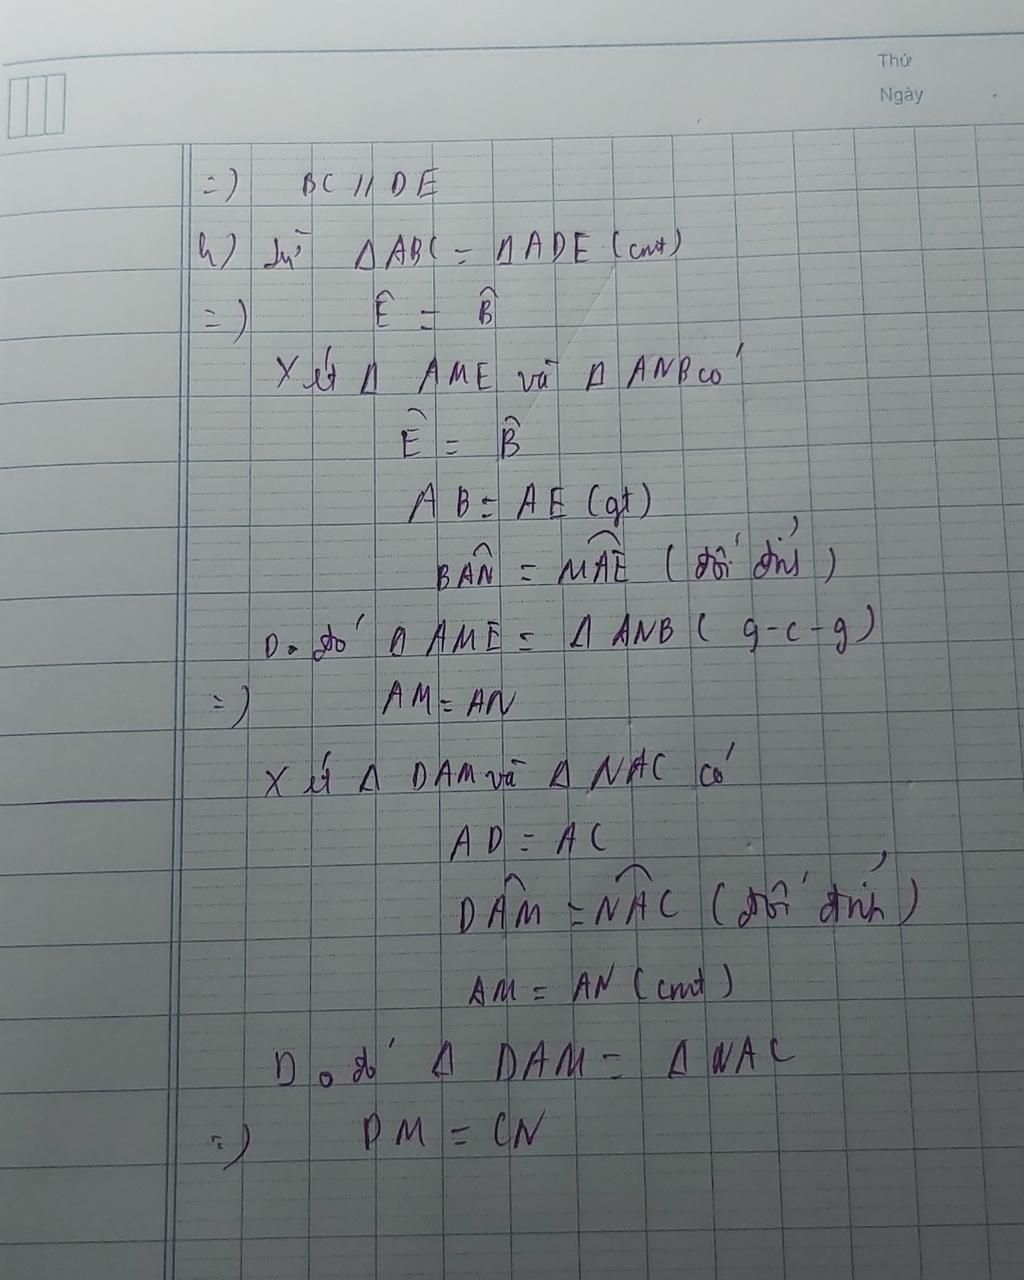 Thứ
Ngày
=) BC // DE
b) Từ Δ ABC = Δ ADE (cmt)
=) Ê = B̂
Xét Δ AME và Δ ANB có
Ê = B̂
AB = AE (gt)
BÂN = MÂE (đối đỉnh)
Do đó Δ AME = Δ ANB (g-c-g)
=) AM = AN
Xét Δ DAM và Δ NAC có
AD = AC
DÂM = NÂC (đối đỉnh)
AM = AN (cmt)
Do đó Δ DAM = Δ NAC
=) DM = CN